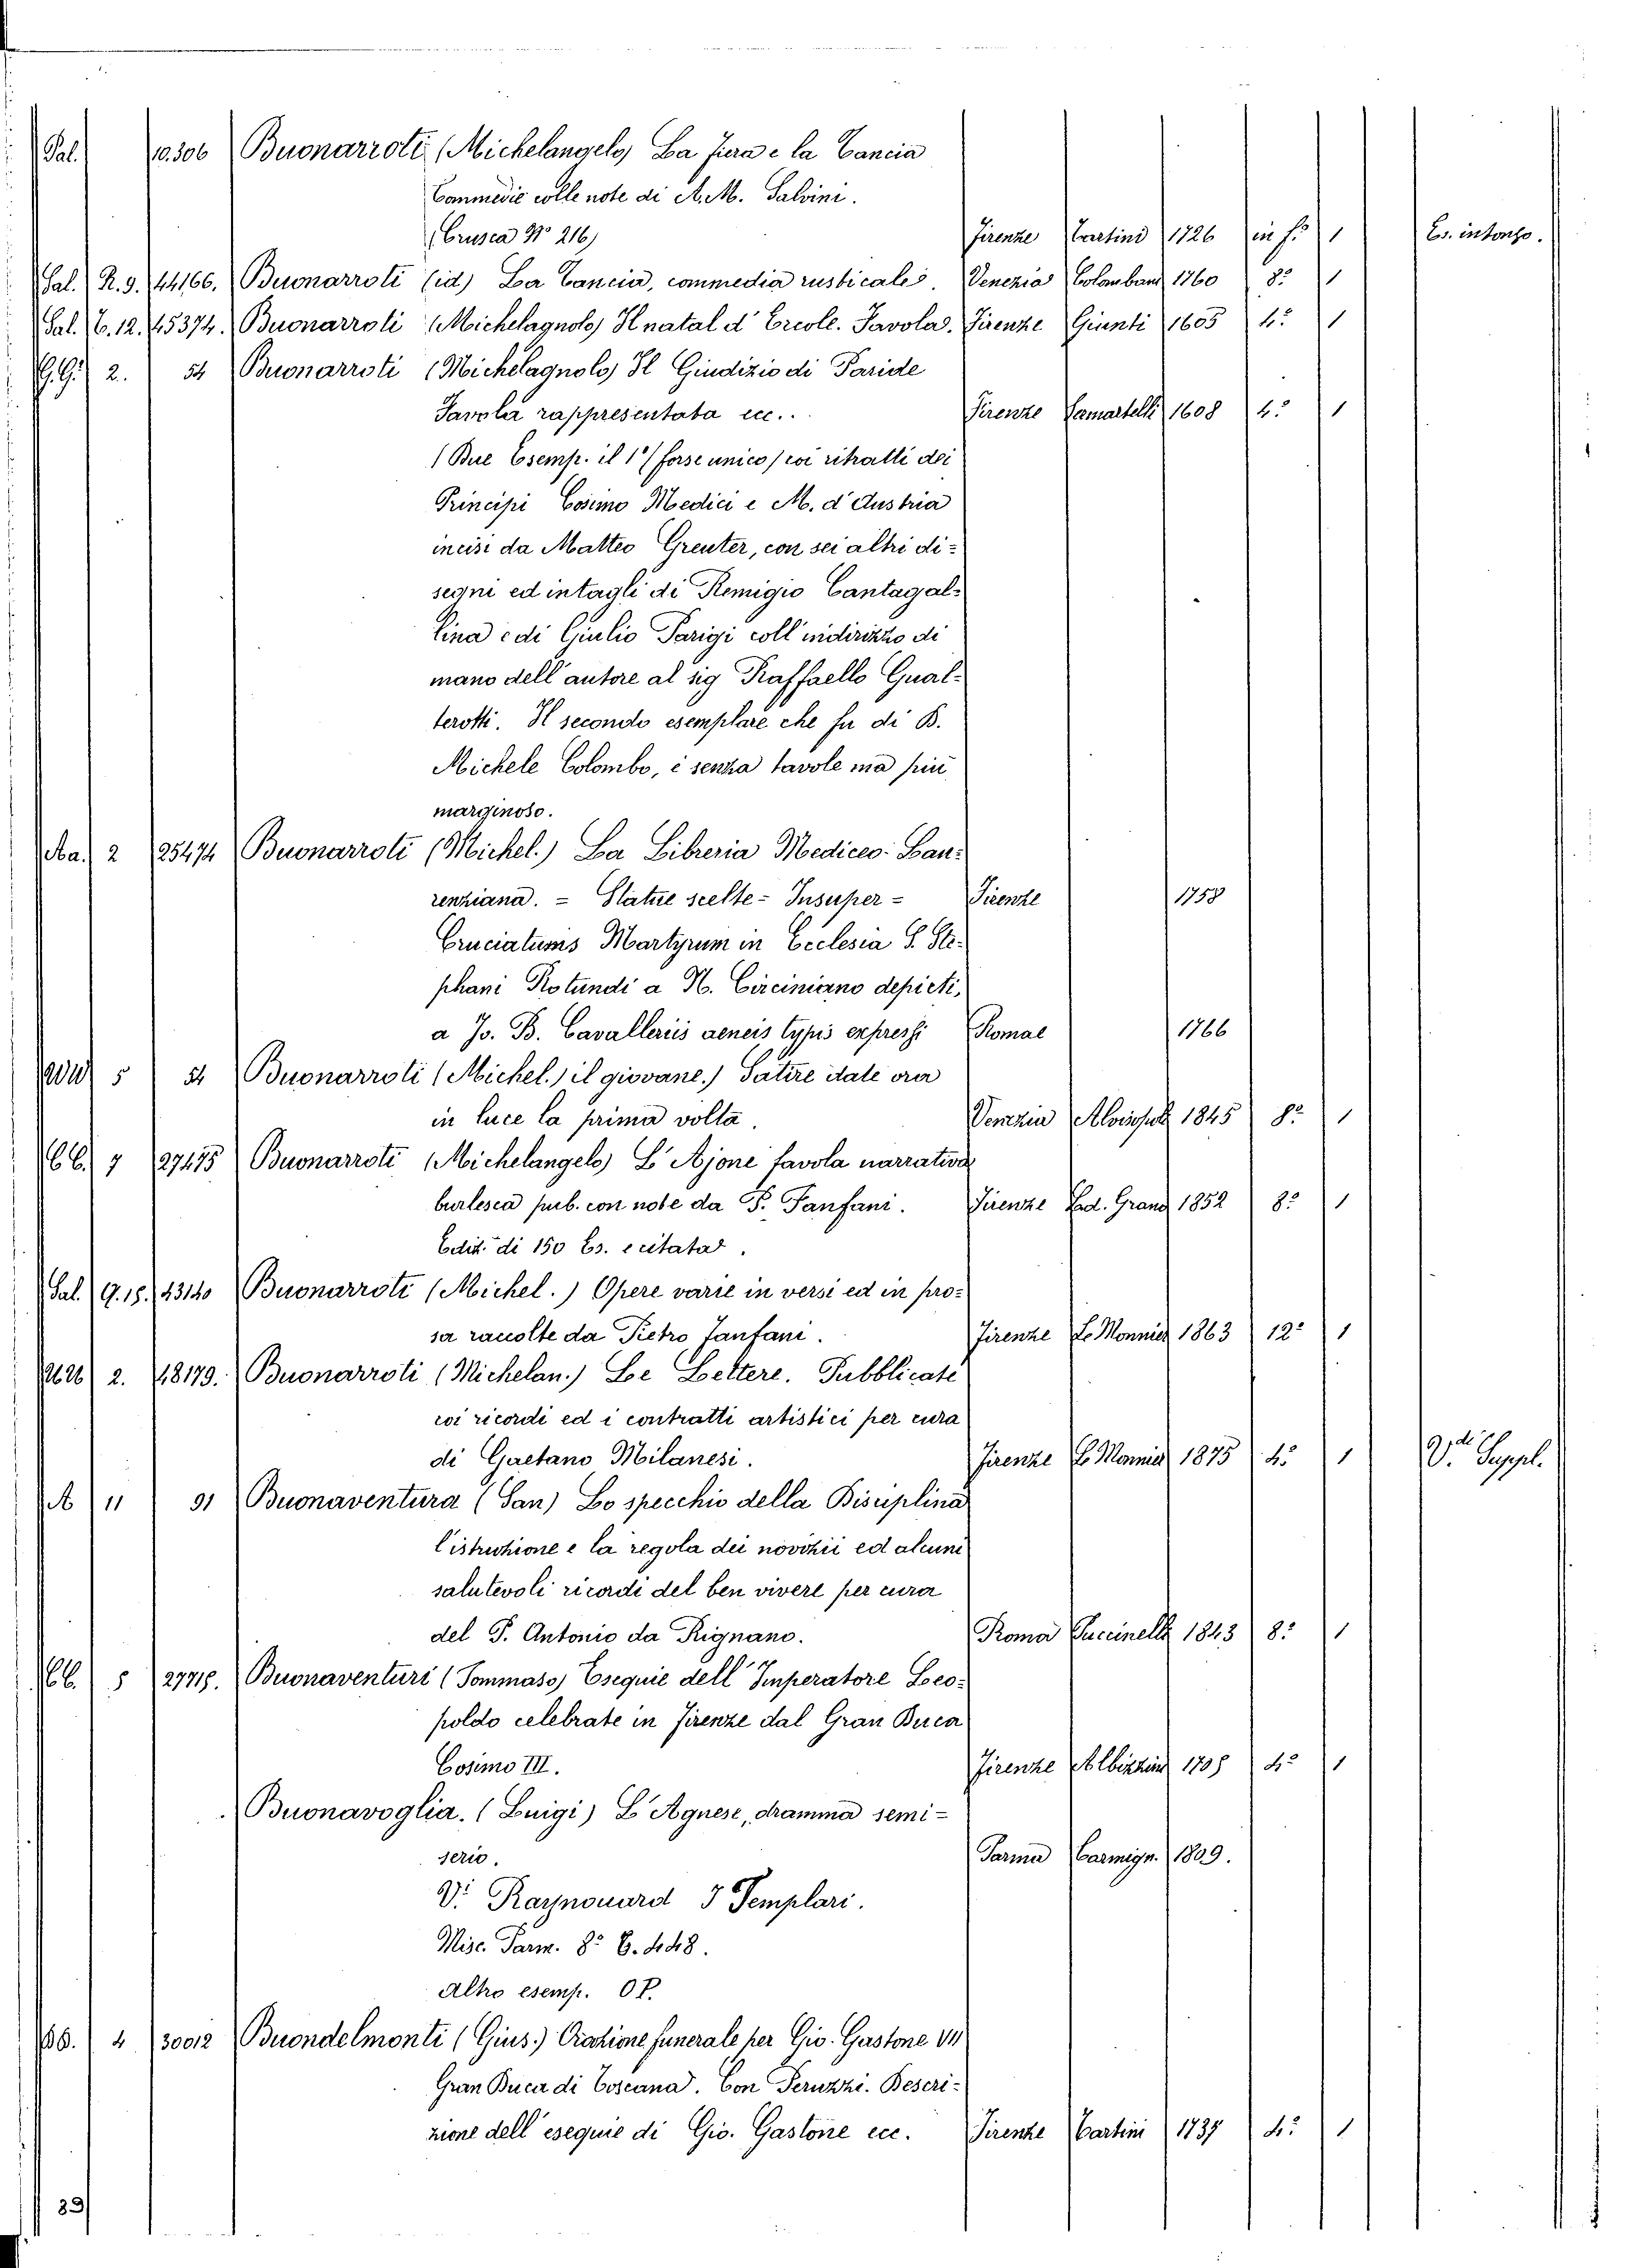 Pal. 10.306 Buonarroti (Michelangelo) La fiera e la Tancia
Commedie colle note di A. M. Salvini.
(Crusca N° 216) Firenze Tartini 1726 in f.° 1 Es. intonso.
Pal. R. 9. 44166. Buonarroti (id) La Tancia, commedia rusticale. Venezia Colomban 1760 8° 1
Pal. C. 12. 45374. Buonarroti (Michelagnolo) Il natal d'Ercole. Favola. Firenze Giunti 1605 4° 1
G.G. 2. 54 Buonarroti (Michelagnolo) Il Giudizio di Paride
Favola rappresentata ecc.. Firenze Samartelli 1608 4° 1
(Due Esemp. il 1° (forse unico) coi ritratti dei
Principi Cosimo Medici e M. d'Austria
incisi da Matteo Greuter, con sei altri di-
segni ed intagli di Remigio Cantagal-
lina e di Giulio Parigi coll'indirizzo di
mano dell'autore al sig Raffaello Gual-
terotti. Il secondo esemplare che fu di B.
Michele Colombo, è senza tavole ma più
marginoso.
Aa. 2 25474 Buonarroti (Michel.) La Libreria Mediceo-Lau-
renziana. = Statue scelte = Insuper = Firenze 1758
Cruciatums Martyrum in Ecclesia S. Ste-
phani Rotundi a N. Circiniano depicti,
a Jo. B. Cavalleriis aeneis typis expressi Romae 1766
5 54 Buonarroti (Michel.) il giovane.) Satire date ora
in luce la prima volta. Venezia Alvisopoli 1845 8° 1
CC. 7 27475 Buonarroti (Michelangelo) L'Ajone favola narrativa
burlesca pub. con note da P. Fanfani. Firenze Tad. Grand 1852 8° 1
Ediz. di 150 Es. e citata.
Pal. G. 18. 43140 Buonarroti (Michel.) Opere varie in versi ed in pro-
sa raccolte da Pietro Fanfani. Firenze Le Monnier 1863 12° 1
2626 2. 48179. Buonarroti (Michelan.) Le Lettere. Pubblicate
coi ricordi ed i contratti artistici per cura
di Gaetano Milanesi. Firenze Le Monnier 1875 4° 1 V.di Suppl.
A 11 91 Buonaventura (San) Lo specchio della Disciplina
l'istruzione e la regola dei novizii ed alcuni
salutevoli ricordi del ben vivere per cura
del P. Antonio da Rignano. Roma Puccinelli 1843 8° 1
CC. 5 27718. Buonaventuri (Tommaso) Esequie dell'Imperatore Leo-
poldo celebrate in Firenze dal Gran Duca
Cosimo III. Firenze Albizzini 1705 4° 1
Buonavoglia. (Luigi) L'Agnese, dramma semi-
serio. Parma Carmign. 1809.
V. Raynouard I Templari.
Misc. Parm. 8° C. 448.
Altro esemp. OP.
4 30012 Buondelmonti (Gius.) Orazione funerale per Gio. Gastone VII
Gran Duca di Toscana. Con Peruzzi. Descri-
zione dell'esequie di Gio. Gastone ecc. Firenze Tartini 1737 4° 1
89